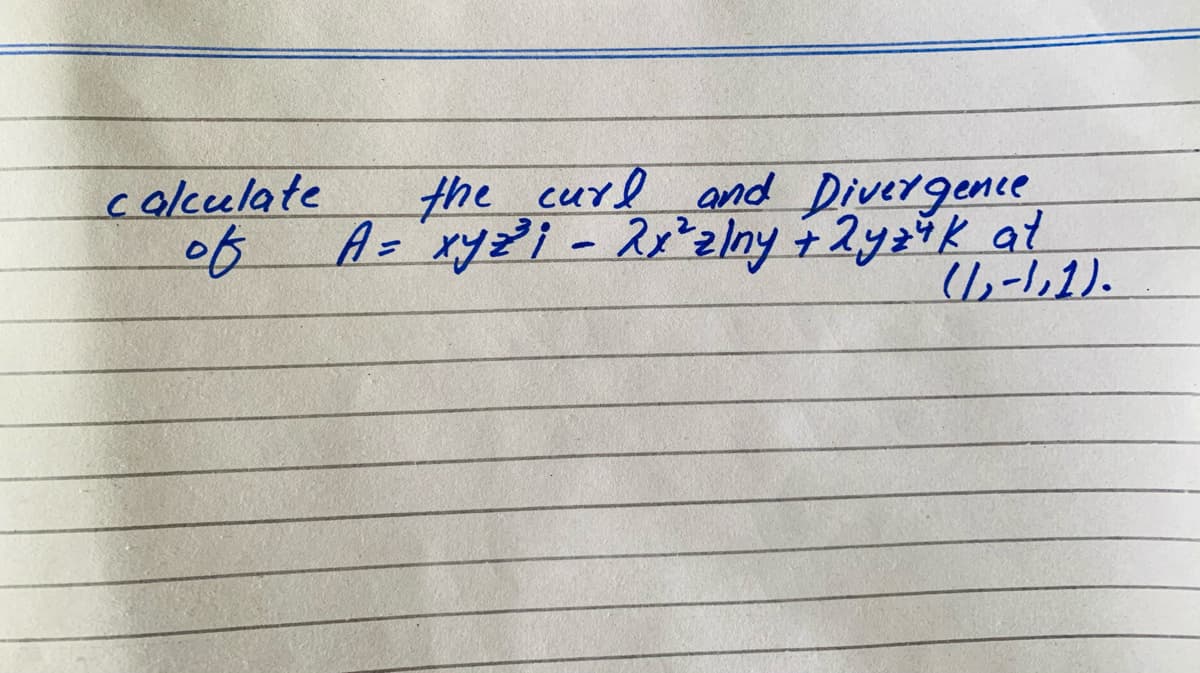 calculate the curl and Divergence
of A = xyz³i - 2x²zlny + 2yz⁴k at
(1,-1,1).